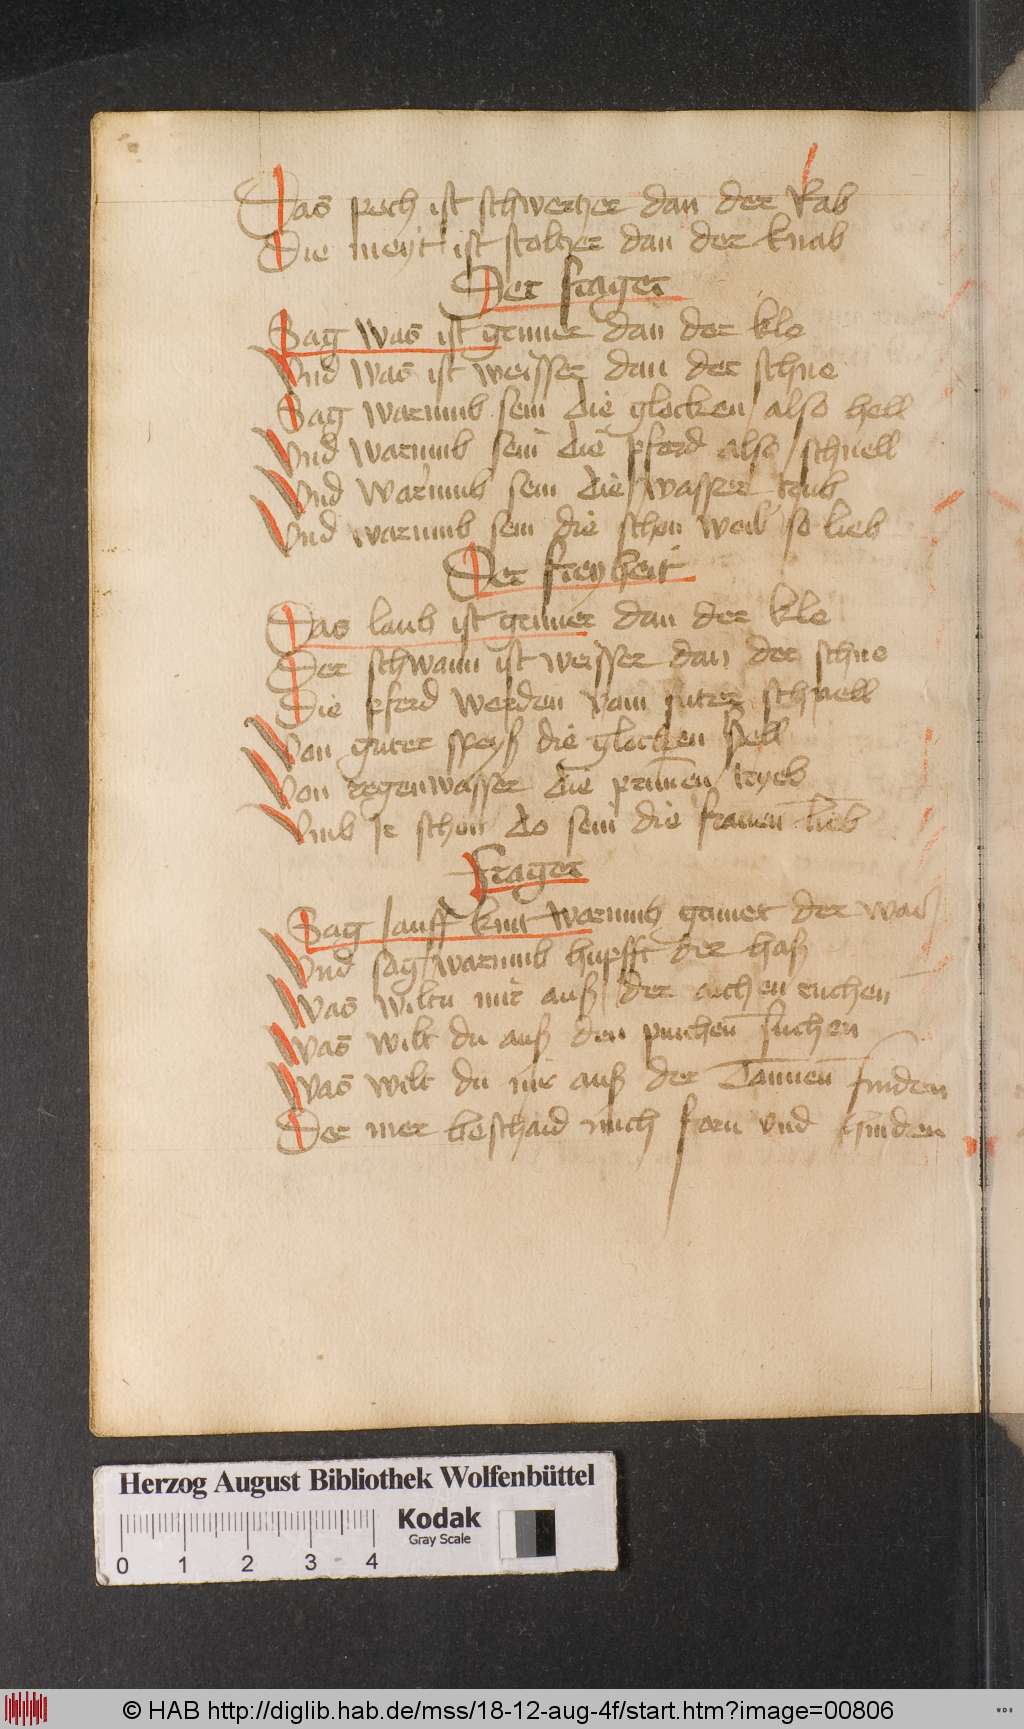 Das pech ist schwerczer dan der Rab
Die meyt ist stolczer dan der knab
Der frager
Sag was ist gruner dan der kle
Vnd was ist weisser dan der schne
Sag warumb sein die glocken also hell
Vnd warumb sein die pferd also schnell
Vnd warumb sein die wasser trub
Vnd warumb sein die schon weib so lieb
Der freyheit
Das laub ist gruner dan der kle
Der schwann ist weisser dan der schne
Die pferd werden vom futer schnell
Von guter speyß die glocken hell
Von regenwasser die prunnen tryeb
Vmb Ir schon do sein die frauen lieb
Frager
Sag lauff knit warumb der
Vnd sag warumb hupfft der haß
Was wiltu mir auß der aichen ruchen
Was wilt du auß den puchen suchen
Was wilt du mir auß der Tannen finden
Der mer beschaid mich forn vnd hinden
Herzog August Bibliothek Wolfenbüttel
Kodak
Gray Scale
0 1 2 3 4
© HAB http://diglib.hab.de/mss/18-12-aug-4f/start.htm?image=00806